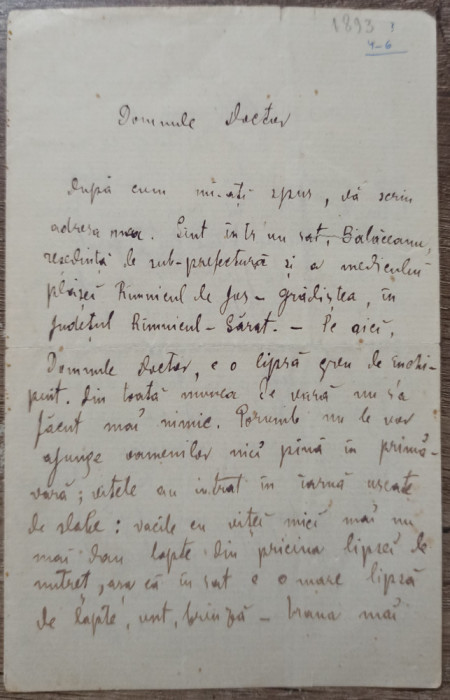 1893 !
4-6
Domnule Doctor
După cum mi-ați spus, vă scriu
adresa mea. Sînt într'un sat, Balăceanu,
reședință de sub-prefectură și a medicului
plășei Rîmnicul de Jos - Grădiștea, în
județul Rîmnicul-Sărat. - Pe aici,
Domnule doctor, e o lipsă greu de închi-
puit. Din toată munca de vară nu s'a
făcut mai nimic. Porumb nu le vor
ajunge oamenilor nici pînă în primă-
vară; vitele au intrat în iarnă uscate
de slabe: vacile cu viței mici mai nu
mai dau lapte din pricina lipsei de
nutreț, așa că în sat e o mare lipsă
de lapte, unt, brînză - hrana mai